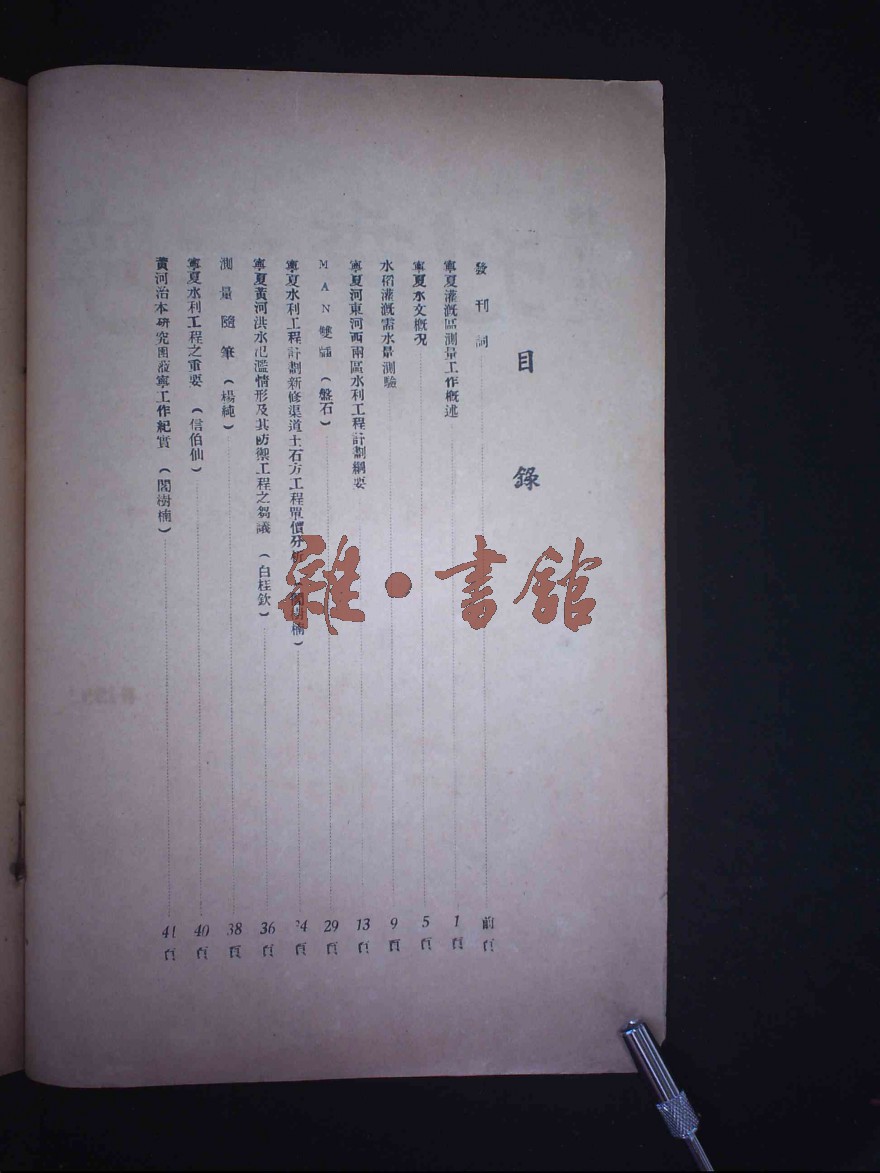 目錄
發刊詞 前頁
寧夏灌漑區測量工作概述 1頁
寧夏水文概況 5頁
水稻灌漑需水量測驗 9頁
寧夏河東河西兩區水利工程計劃綱要 13頁
MAN雙 (盤石) 29頁
寧夏水利工程計劃新修渠道土石方工程單價分析 樹楠) 34頁
寧夏黃河洪水氾濫情形及其防禦工程之芻議 (白桂欽) 36頁
測量隨筆 (楊純) 38頁
寧夏水利工程之重要 (信伯仙) 40頁
黃河治本研究團蒞寧工作紀實 (閻樹楠) 41頁
雜·書館